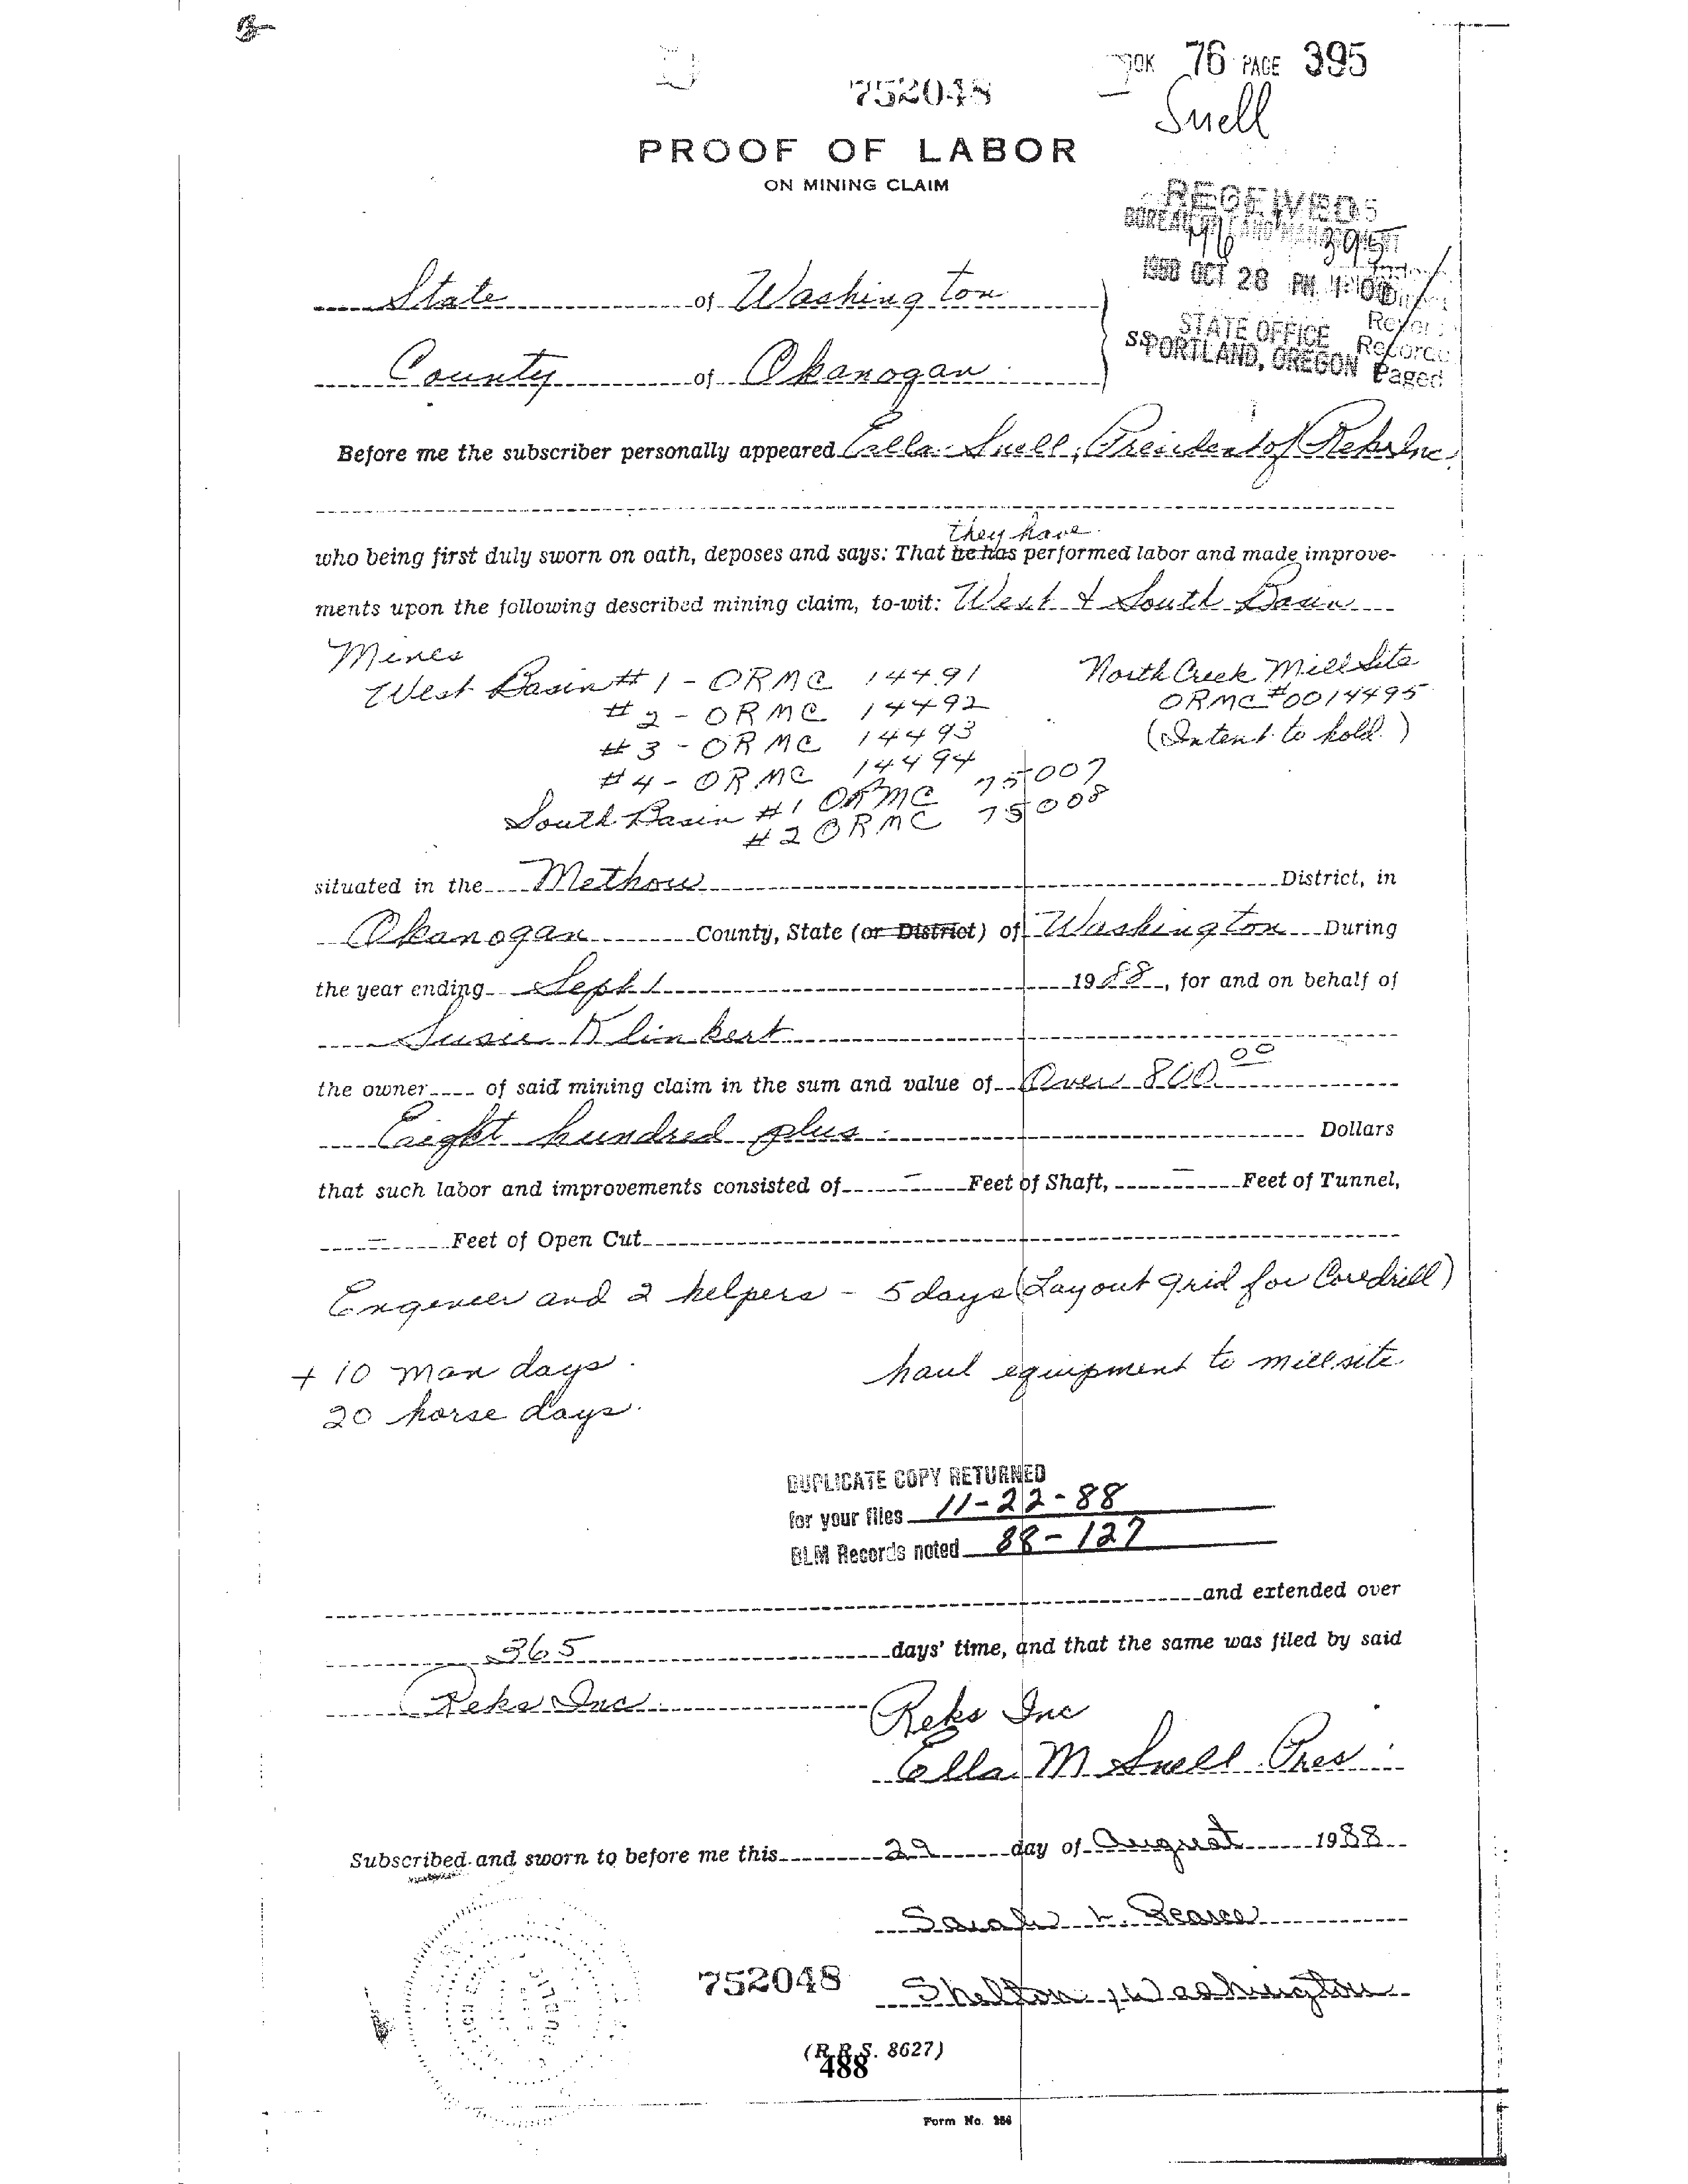 BOOK 76 PAGE 395
752048
Snell
PROOF OF LABOR
ON MINING CLAIM
RECEIVED
BUREAU OF LAND MANAGEMENT
76 395
1988 OCT 28 PM 1:00
STATE OFFICE
PORTLAND, OREGON
Paged
State of Washington
ss
County of Okanogan
Before me the subscriber personally appeared Ella Snell, President of Reks Inc.
they have
who being first duly sworn on oath, deposes and says: That he has performed labor and made improve-
ments upon the following described mining claim, to-wit: West & South Basin
Mines
West Basin #1 - ORMC 14491
#2 - ORMC 14492
#3 - ORMC 14493
#4 - ORMC 14494
South Basin #1 ORMC 75007
#2 ORMC 75008
North Creek Mill Site
ORMC #0014495
(Intent to hold.)
situated in the Methow District, in
Okanogan County, State (or District) of Washington During
the year ending Sept 1 1988, for and on behalf of
Susie Klinkert
the owner of said mining claim in the sum and value of Over 800 00
Eight hundred plus Dollars
that such labor and improvements consisted of - Feet of Shaft, - Feet of Tunnel,
- Feet of Open Cut
Engeneer and 2 helpers - 5 days (Layout grid for Coredrill)
+ 10 man days. haul equipment to millsite
20 horse days.
DUPLICATE COPY RETURNED
for your files 11-22-88
BLM Records noted 88-127
and extended over
365 days' time, and that the same was filed by said
Reks Inc. Reks Inc
Ella M Snell Pres.
Subscribed and sworn to before me this 29 day of August 1988
Sarah L. Pearce
752048 Shelton, Washington
(R.R.S. 8627)
488
Form No. 286